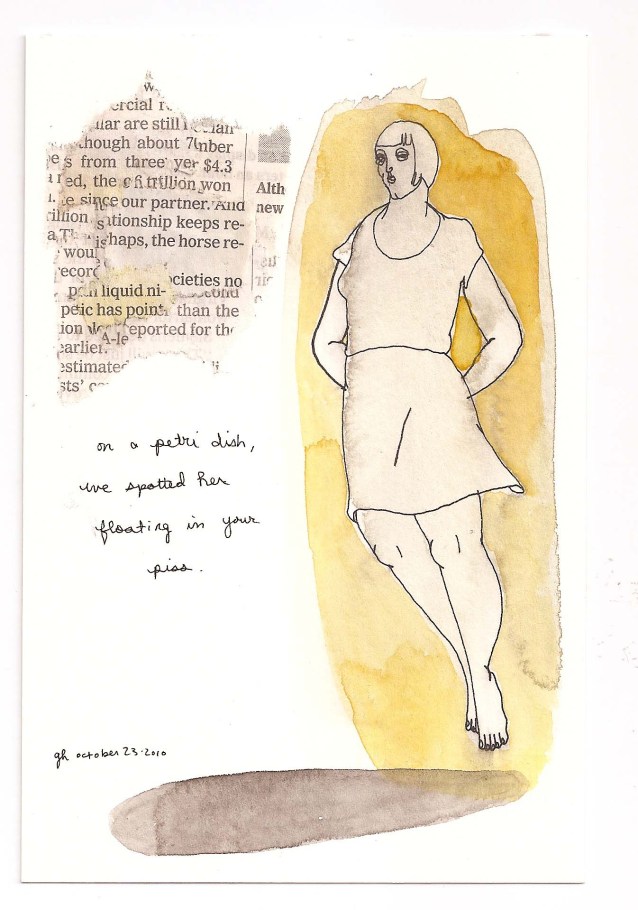 w
ercial r
llar are still
though about 7
mber
s from three yer $4.3
red, the trillion won
e since our partner. And
cillion ationship keeps re-
a T haps, the horse re-
woul
record
ocieties no
liquid ni-
petic has point than the
ion reported for the
earlier A-le
estimated
sts'
Alth
new
on a petri dish,
we spotted her
floating in your
piss.
gh october 23-2010